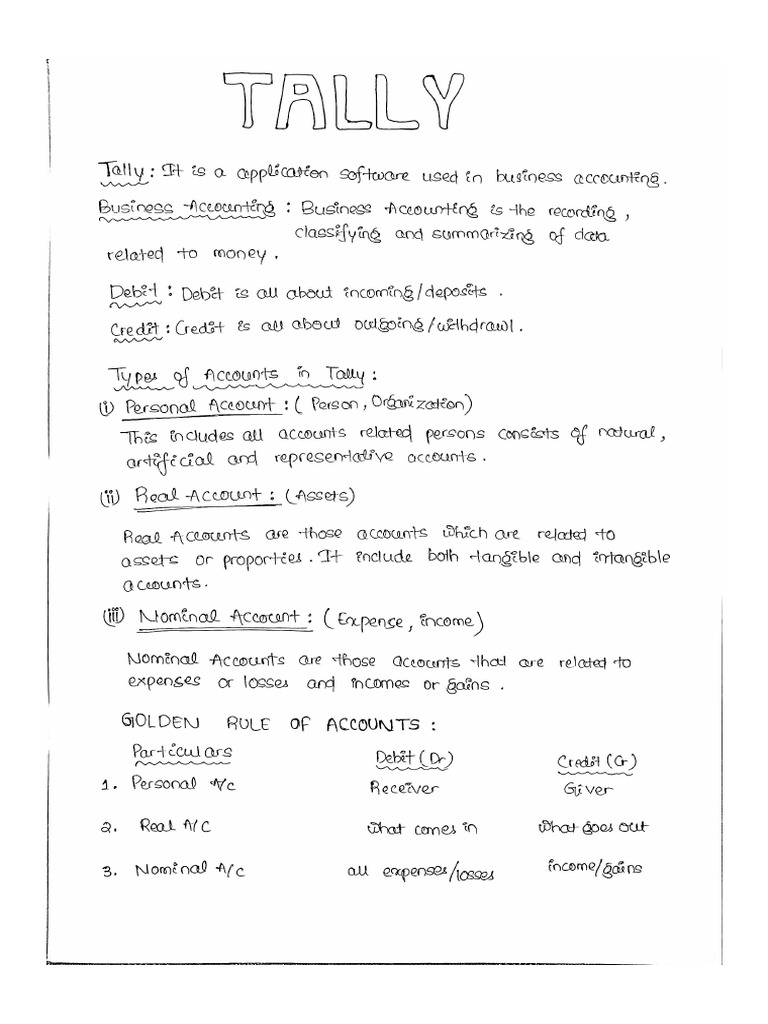 TALLY
Tally : It is a application software used in business accounting.
Business Accounting : Business Accounting is the recording,
classifying and summarizing of data
related to money.
Debit : Debit is all about incoming/deposits.
Credit : Credit is all about outgoing/withdrawl.
Types of Accounts in Tally :
(i) Personal Account : (Person, Organization)
This includes all accounts related persons consists of natural,
artificial and representative accounts.
(ii) Real Account : (Assets)
Real Accounts are those accounts which are related to
assets or proporties. It include both tangible and intangible
accounts.
(iii) Nominal Account : (Expense, income)
Nominal Accounts are those accounts that are related to
expenses or losses and incomes or gains.
GOLDEN RULE OF ACCOUNTS :
Particulars Debit (Dr) Credit (Cr)
1. Personal A/c Receiver Giver
2. Real A/C What comes in What goes out
3. Nominal A/c all expenses/losses income/gains